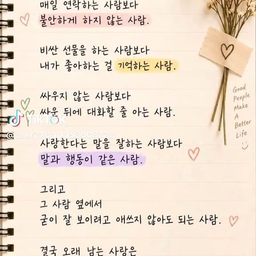 매일 연락하는 사람보다
불안하게 하지 않는 사람.
비싼 선물을 하는 사람보다
내가 좋아하는 걸 기억하는 사람.
싸우지 않는 사람보다
싸운 뒤에 대화할 줄 아는 사람.
사랑한다는 말을 잘하는 사람보다
말과 행동이 같은 사람.
그리고
그 사람 옆에서
굳이 잘 보이려고 애쓰지 않아도 되는 사람.
결국 오래 남는 사람은
Good
People
Make
A
Better
Life